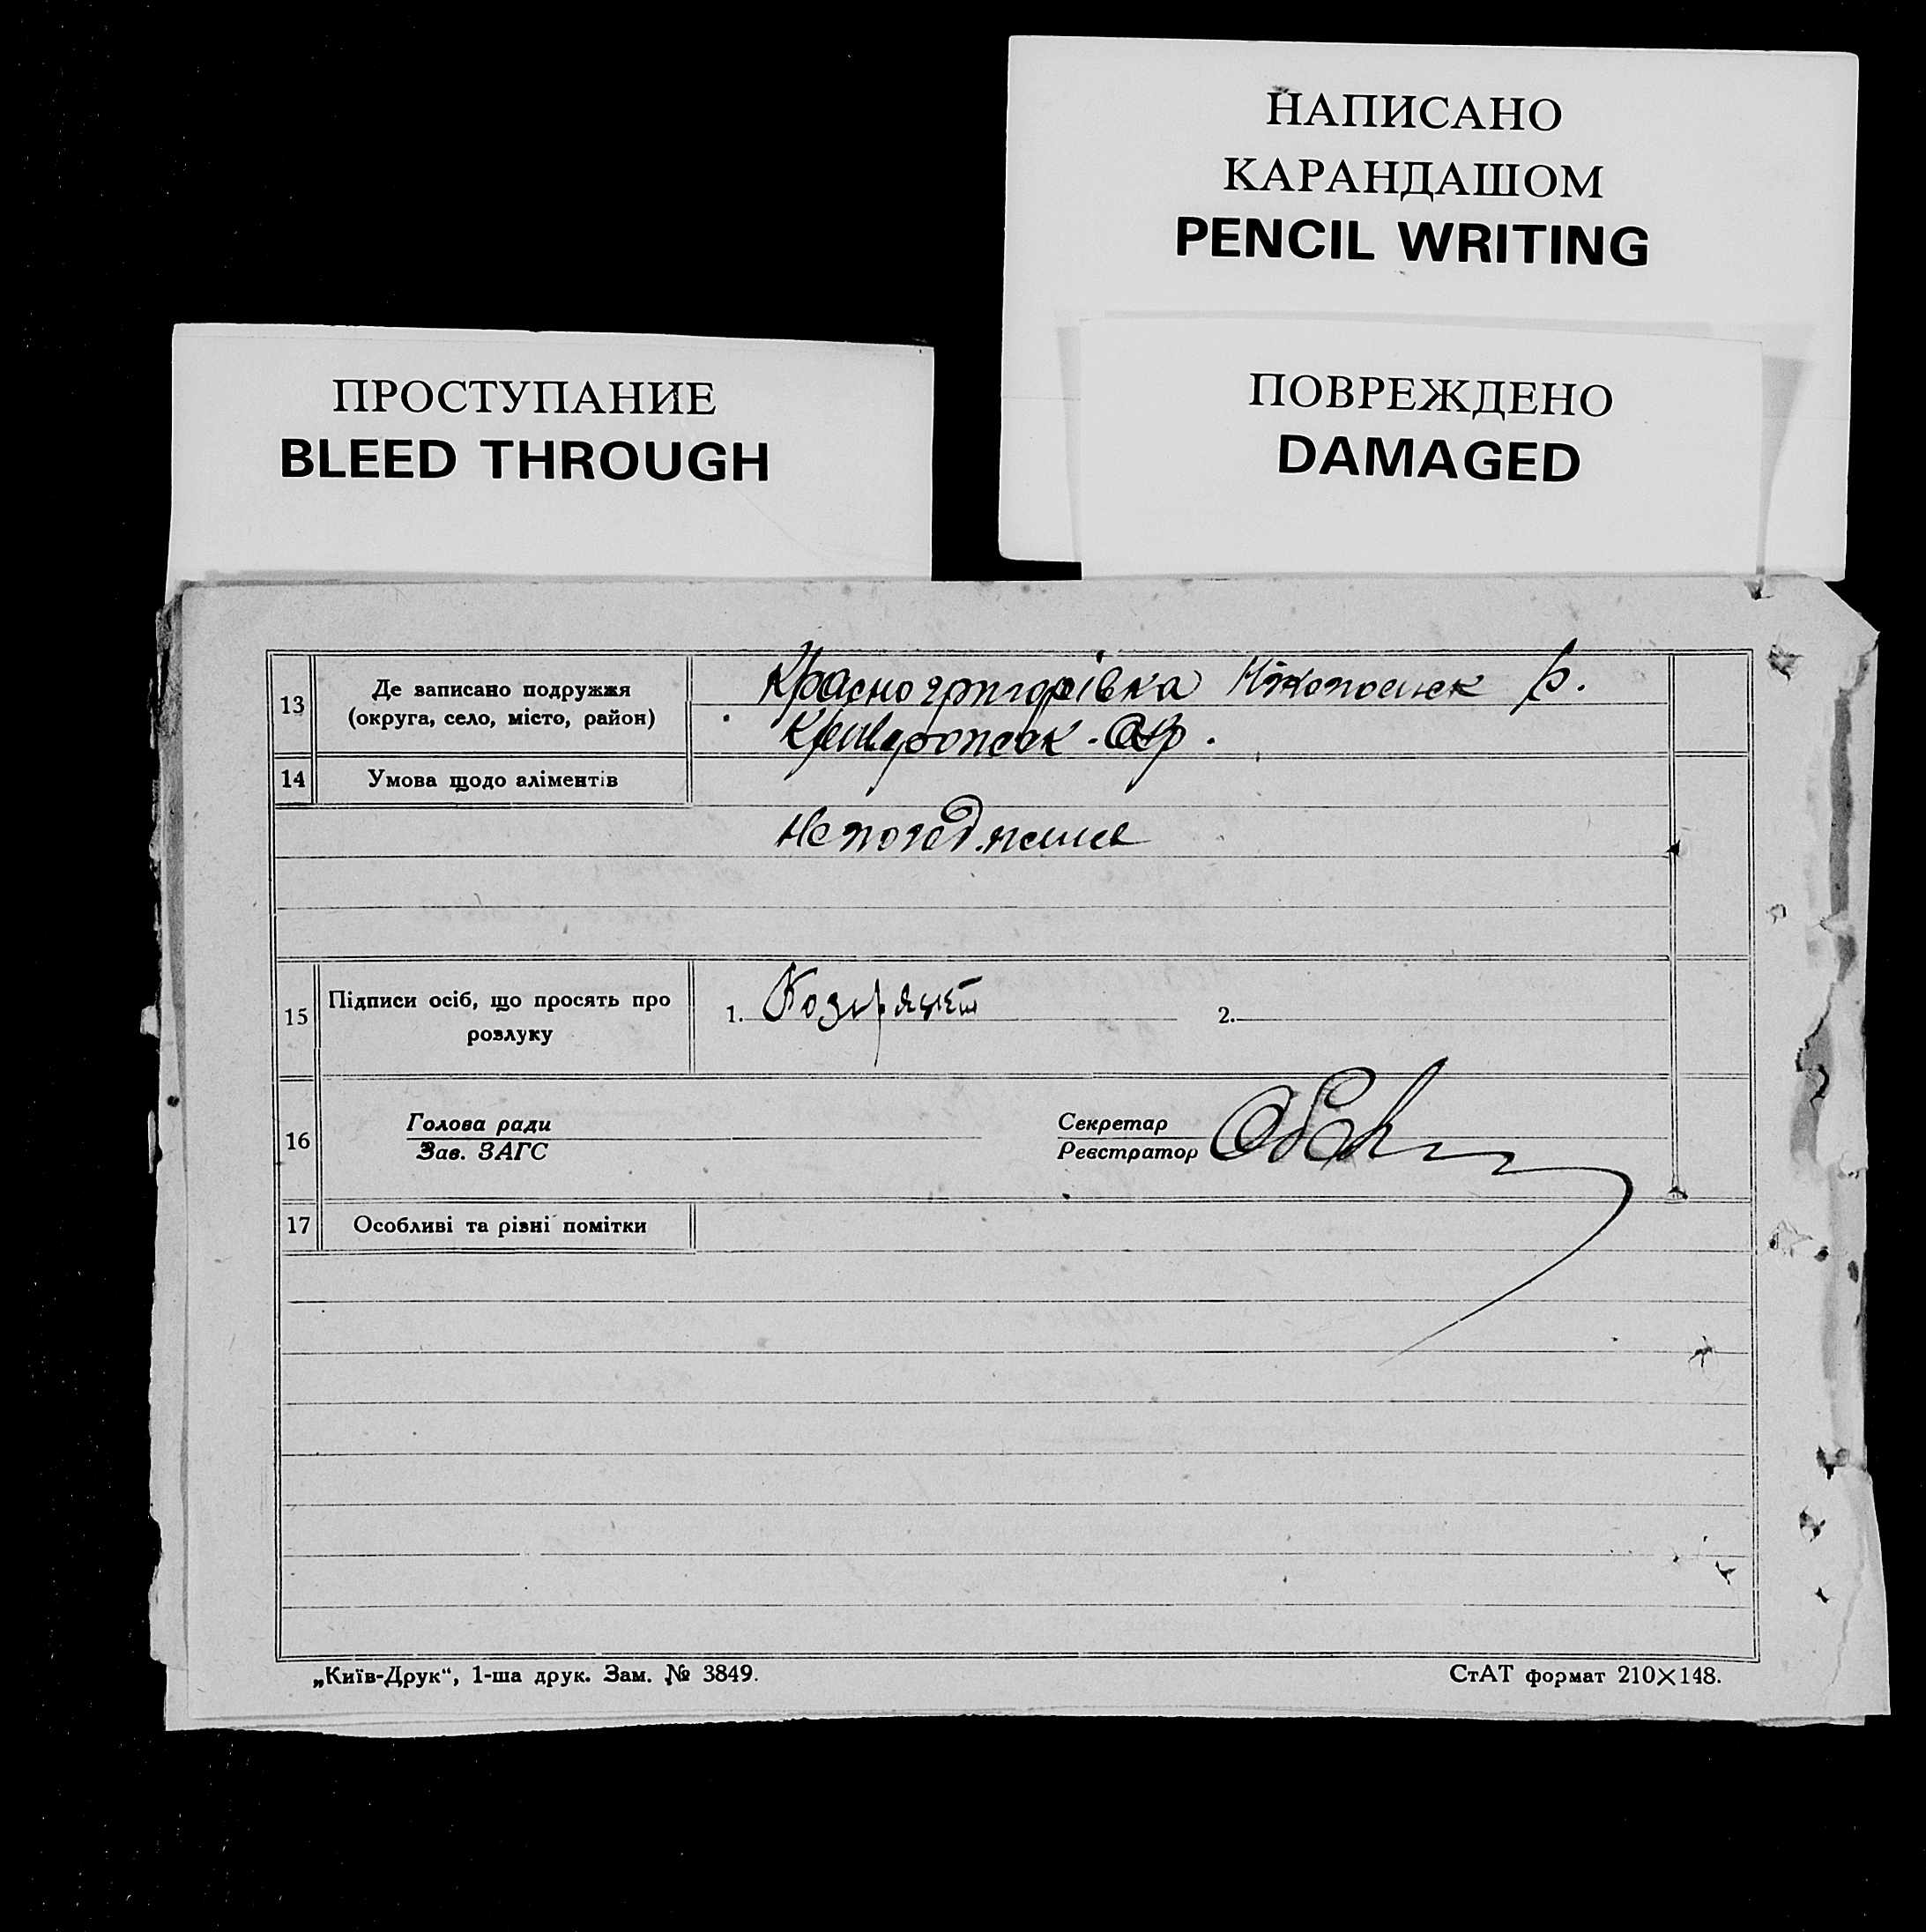 НАПИСАНО
КАРАНДАШОМ
PENCIL WRITING
ПРОСТУПАНИЕ
BLEED THROUGH
ПОВРЕЖДЕНО
DAMAGED
13 Де записано подружжя
(округа, село, місто, район)
Красногригорівка Нікопольск р.
Криворожськ. Окр.
14 Умова щодо аліментів
15 Підписи осіб, що просять про
розлуку
1. 2.
16 Голова ради
Зав. ЗАГС
Секретар
Реєстратор
17 Особливі та різні помітки
„Київ-Друк“, 1-ша друк. Зам. № 3849.
СтАТ формат 210×148.